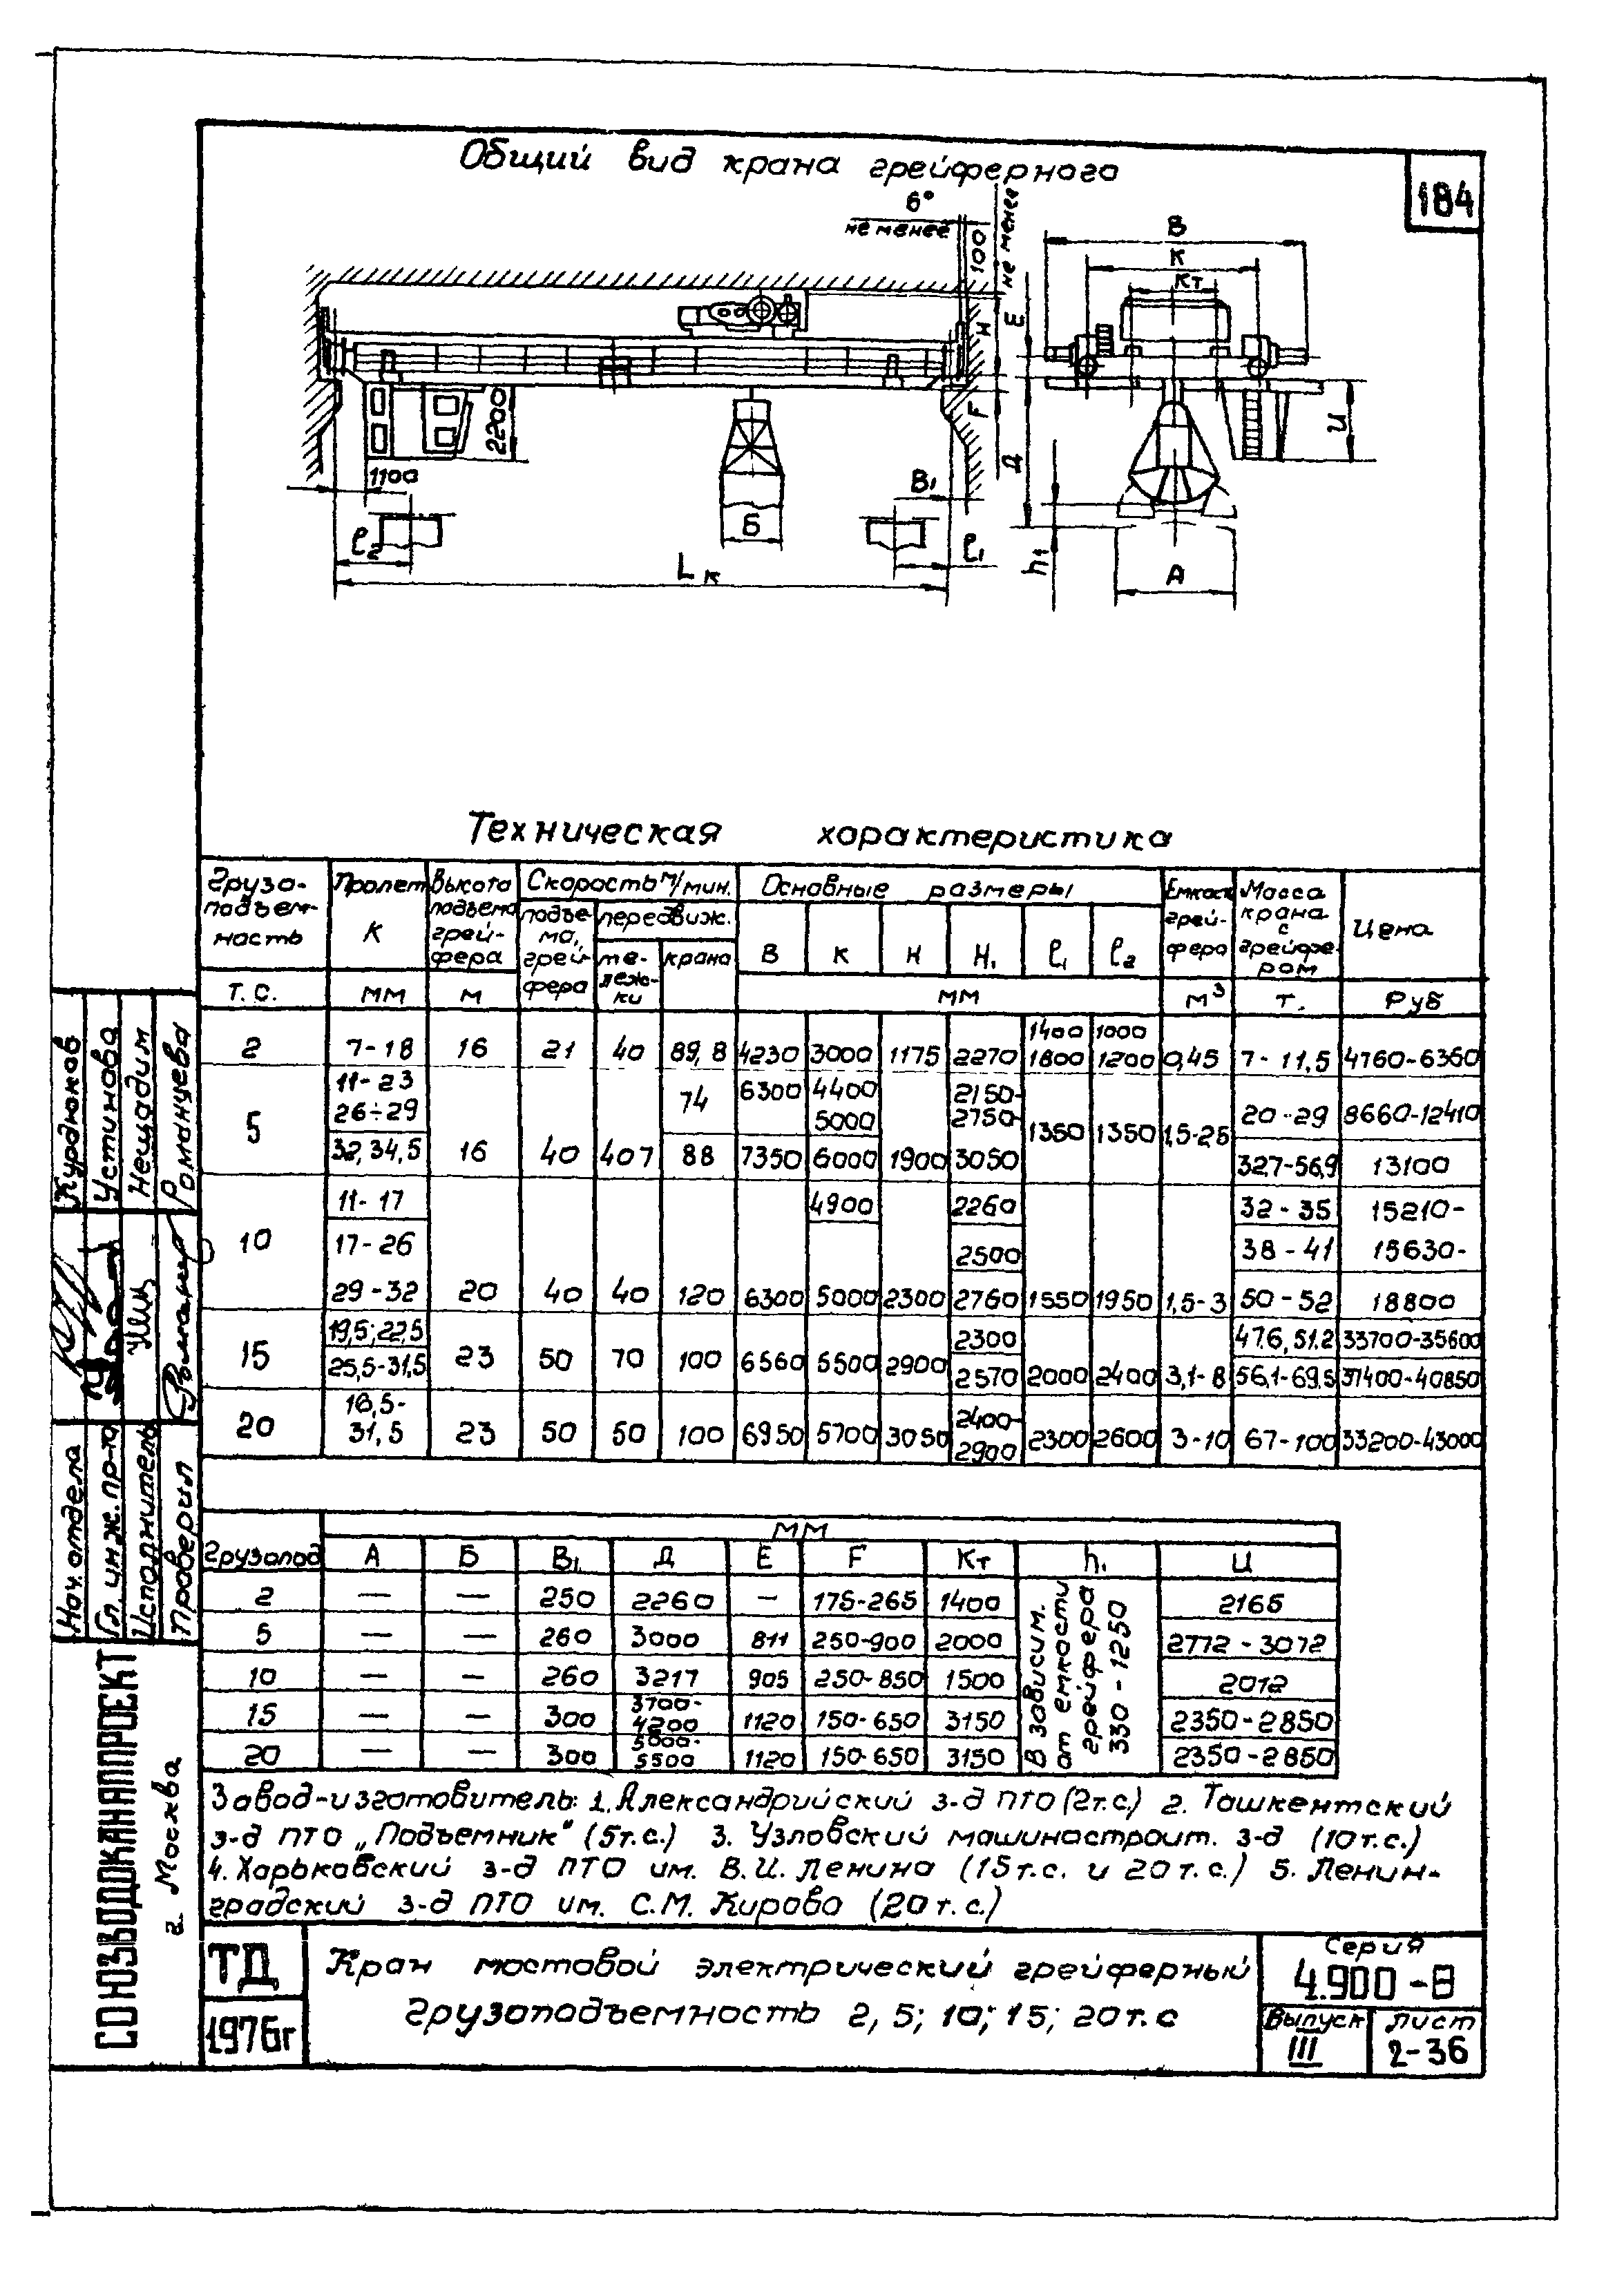 Общий вид крана грейферного
184
6°
не менее
100
не менее
В
К
Кт
Е
Н
F
2200
И
1100
Д
В₁
Б
ℓ₂
ℓ₁
h₁
Lк
А
Техническая характеристика
Грузо-подъем-ность Пролет К Высота подъема грей-фера Скорость м/мин. Основные размеры Емкость грей-фера Масса крана с грейфе-ром Цена
подъе-ма, грей-фера передвиж. те-леж-ки крана В К Н Н₁ ℓ₁ ℓ₂
т.с. мм м мм м³ т. Руб
1400 1000
2 7-18 16 21 40 89,8 4230 3000 1175 2270 1800 1200 0,45 7-11,5 4760-6360
11-23 74 6300 4400 2150-
26÷29 5000 2750 20-29 8660-12410
5 32,34,5 16 40 40,7 88 7350 6000 1900 3050 1350 1350 1,5-2,5 32,7-56,9 13100
11-17 4900 2260 32-35 15210-
10 17-26 2500 38-41 15630-
29-32 20 40 40 120 6300 5000 2300 2760 1550 1950 1,5-3 50-52 18800
19,5;22,5 2300 47.6, 51.2 33700-35600
15 25,5-31,5 23 50 70 100 6560 5500 2900 2570 2000 2400 3,1-8 56,1-69,5 37400-40850
16,5- 2400-
20 31,5 23 50 50 100 6950 5700 3050 2900 2300 2600 3-10 67-100 33200-43000
мм
Грузопод А Б В₁ Д Е F Кт h₁ И
2 — — 250 2260 — 175-265 1400 2165
5 — — 260 3000 811 250-900 2000 2772-3072
10 — — 260 3217 905 250-850 1500 2012
15 — — 300 3700-4200 1120 150-650 3150 2350-2850
20 — — 300 5000-5500 1120 150-650 3150 2350-2850
В зависим.
от емкости
грейфера
330-1250
Завод-изготовитель: 1. Александрийский з-д ПТО (2т.с.) 2. Ташкентский
з-д ПТО „Подъемник" (5т.с.) 3. Узловский машиностроит. з-д (10т.с.)
4. Харьковский з-д ПТО им. В.И. Ленина (15т.с. и 20т.с.) 5. Ленин-
градский з-д ПТО им. С.М. Кирова (20т.с.)
ТД
1976г
Кран мостовой электрический грейферный
грузоподъемность 2, 5; 10; 15; 20т.с
Серия
4.900-8
Выпуск
III
Лист
2-36
Нач. отдела Курдюков
Гл. инж. пр-та Устинова
Исполнитель Нещадим
Проверил Романчева
СОЮЗВОДОКАНАЛПРОЕКТ
г. Москва